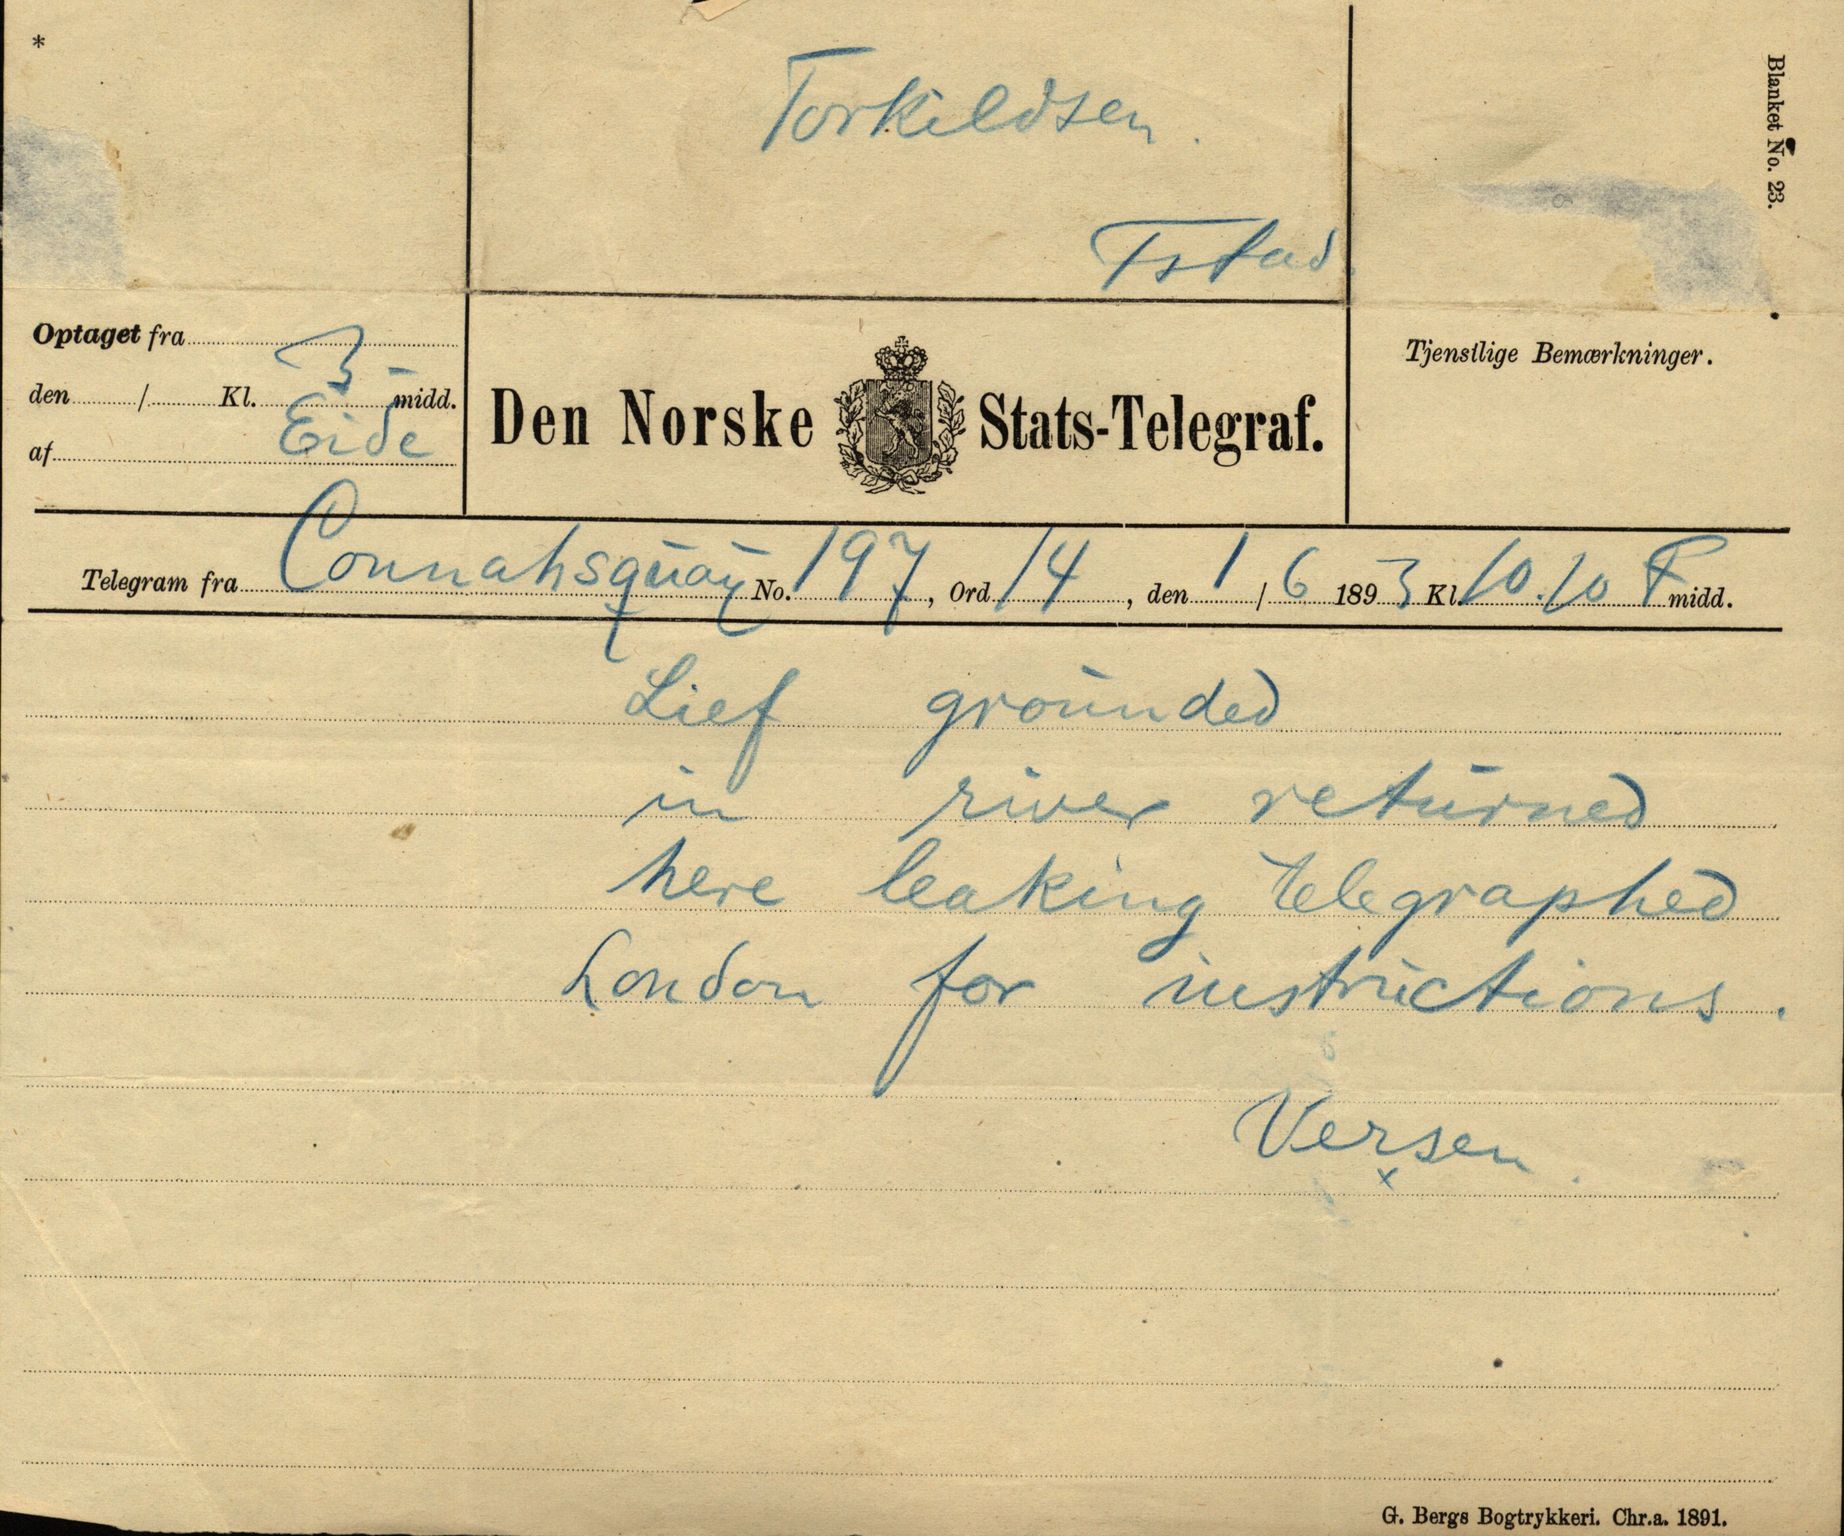 *
Torkildsen.
Tstad.
Blanket No. 23.
Optaget fra
den / Kl. 3 - midd.
af Eide
Den Norske Stats-Telegraf.
Tjenstlige Bemærkninger.
Telegram fra Connahsquay No. 197, Ord 14, den 1/6 1893 Kl. 10.10 F midd.
Lief grounded
in river returned
here leaking telegraphed
London for instructions.
Versen.
x
G. Bergs Bogtrykkeri. Chr.a. 1891.